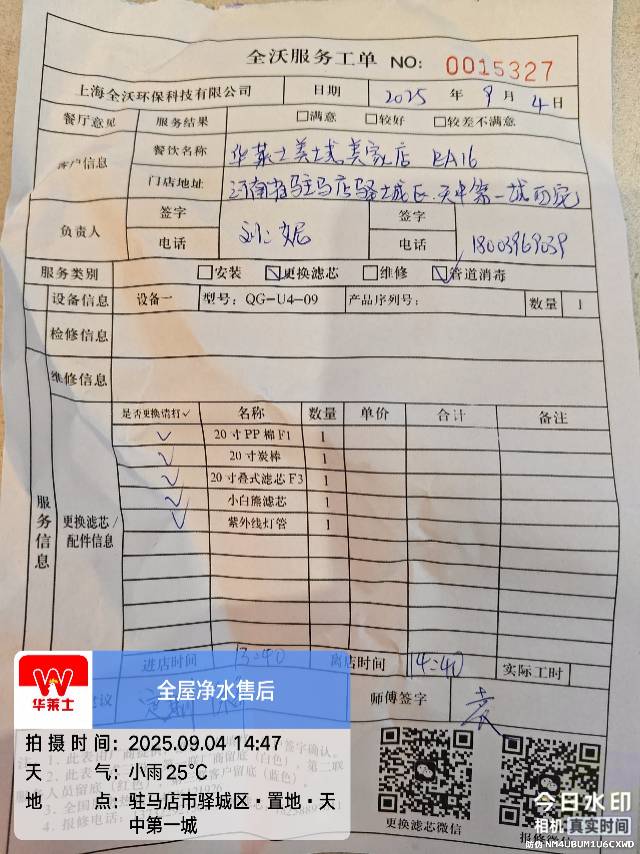 全沃服务工单 NO: 0015327
上海全沃环保科技有限公司 日期 2025 年 9 月 4 日
餐厅意见 服务结果 □满意 □较好 □较差不满意
客户信息 餐饮名称 华莱士 美 店 EA16
门店地址 河南省驻马店驿城区天中第一城
负责人 签字 妮 签字
电话 电话 18003969039
服务类别 □安装 ☑更换滤芯 □维修 ☑管道消毒
设备信息 设备一 型号: QG-U4-09 产品序列号: 数量 1
检修信息
维修信息
服务信息 更换滤芯/配件信息
是否更换请打✓ 名称 数量 单价 合计 备注
✓ 20寸PP棉F1 1
✓ 20寸炭棒 1
✓ 20寸叠式滤芯F3 1
✓ 小白熊滤芯 1
✓ 紫外线灯管 1
进店时间 13:40 离店时间 14:40 实际工时
建议 师傅签字 袁
华莱士
全屋净水售后
拍摄时间: 2025.09.04 14:47
天气: 小雨 25℃
地点: 驻马店市驿城区·置地·天
中第一城
更换滤芯微信 报修微信
今日水印
相机 真实时间
防伪 NM4UBUM1U6CXWD